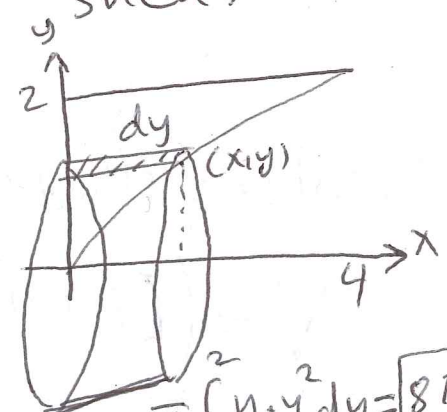 y
2
dy
(x,y)
x
4
2
= ∫ y · y² dy = 8